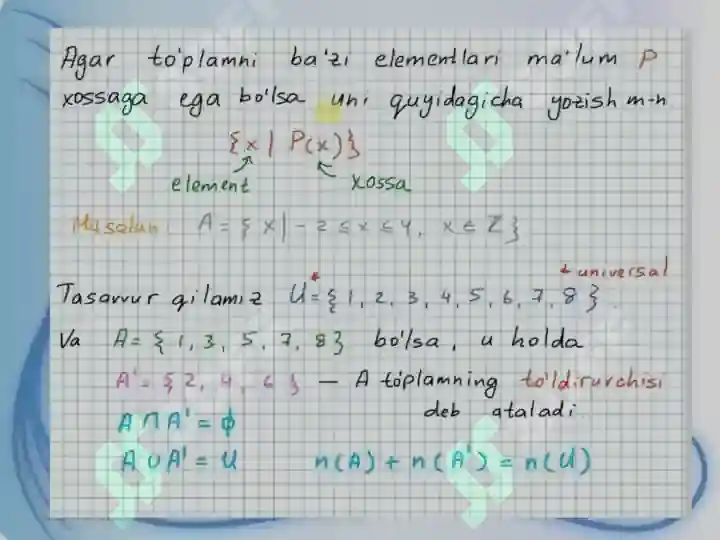 Agar to'plamni ba'zi elementlari ma'lum P
xossaga ega bo'lsa uni quyidagicha yozish m-n
{x | P(x)}
element xossa
Masalan: A = {x | -2 ≤ x ≤ 4, x ∈ Z}
* universal
Tasavvur qilamiz U* = {1, 2, 3, 4, 5, 6, 7, 8}
Va A = {1, 3, 5, 7, 8} bo'lsa, u holda
A' = {2, 4, 6} — A to'plamning to'ldiruvchisi
deb ataladi
A ∩ A' = ϕ
A ∪ A' = U n(A) + n(A') = n(U)